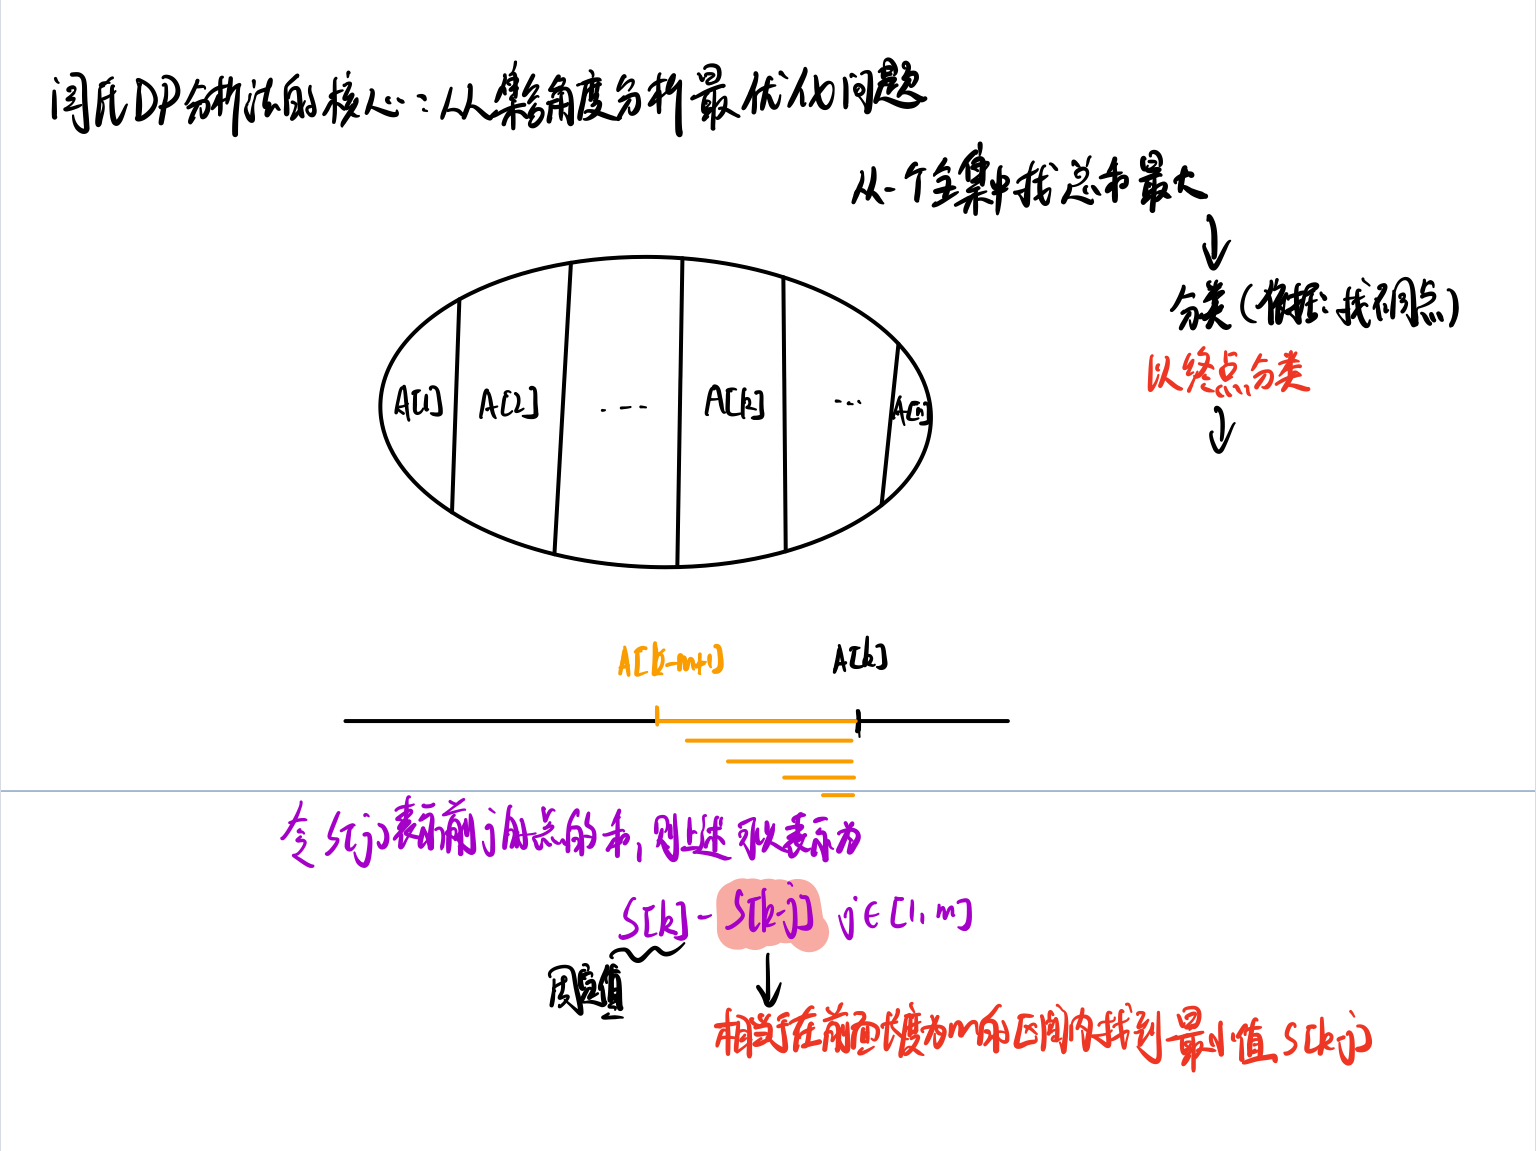 闫氏DP分析法的核心:从集合角度分析最优化问题
从一个全集中找总和最大
分类(依据:找不同点)
以终点分类
A[1] A[2] ... A[k] ... A[n]
A[k-m+1] A[k]
令S[j]表示前j的点的和,则上述可以表示为
S[k]-S[k-j] j∈[1,m]
固定值
相当于在前面长度为m的区间内找到最小值S[k-j]